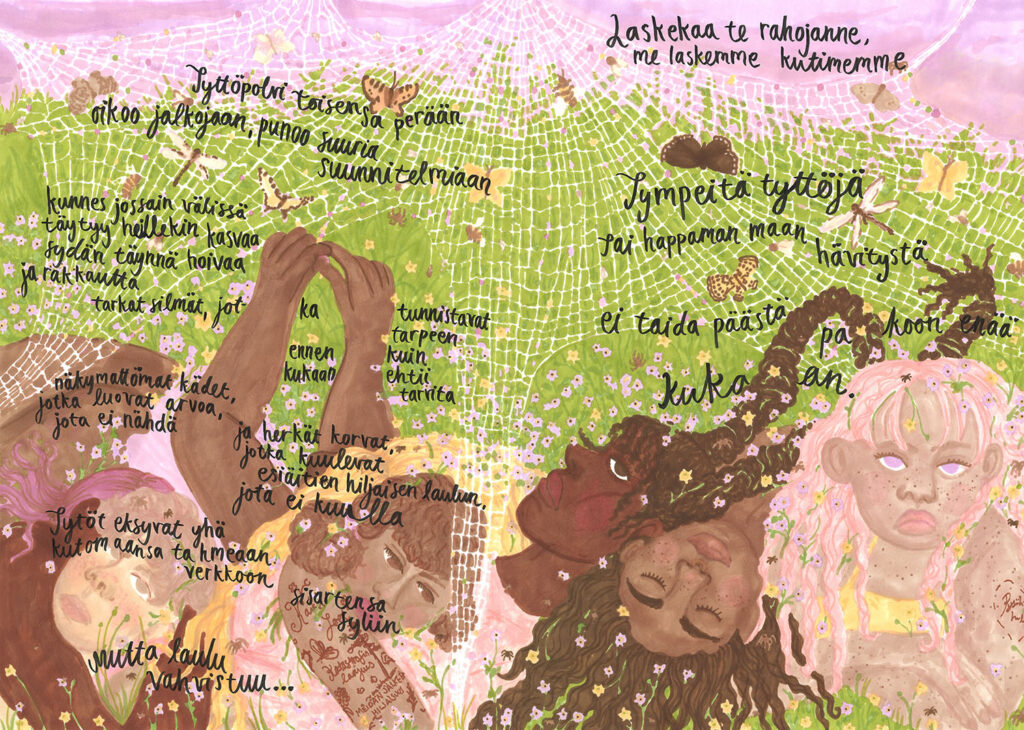 Tyttöpolvi toisensa perään
oikoo jalkojaan, punoo suuria
suunnitelmiaan
kunnes jossain välissä
täytyy heillekin kasvaa
sydän täynnä hoivaa
ja rakkautta
tarkat silmät, jotka tunnistavat
tarpeen
ennen kuin
kukaan ehtii
tarvita
näkymättömät kädet,
jotka luovat arvoa,
jota ei nähdä
ja herkät korvat,
jotka kuulevat
esiäitien hiljaisen laulun,
jota ei kuulla
Tytöt eksyvat yhä
kutomaansa tahmeaan
verkkoon
sisartensa
syliin
mutta laulu
vahvistuu...
Laskekaa te rahojanne,
me laskemme kutimemme
Tympeitä tyttöjä
tai happaman maan hävitystä
ei taida päästä pakoon enää
kukaan.